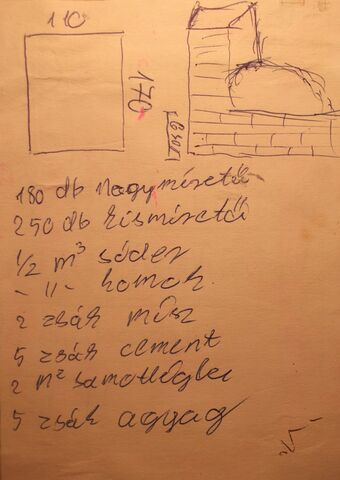 110
170
180 db Nagyméretű
250 db kisméretű
1/2 m³ sóder
- " - homok.
2 zsák mész
5 zsák cement
2 m² samotlégla
5 zsák agyag